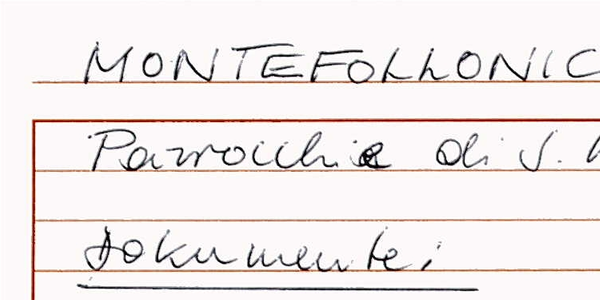 MONTEFOLLONIC
Parrocchia di S.
Dokumente: